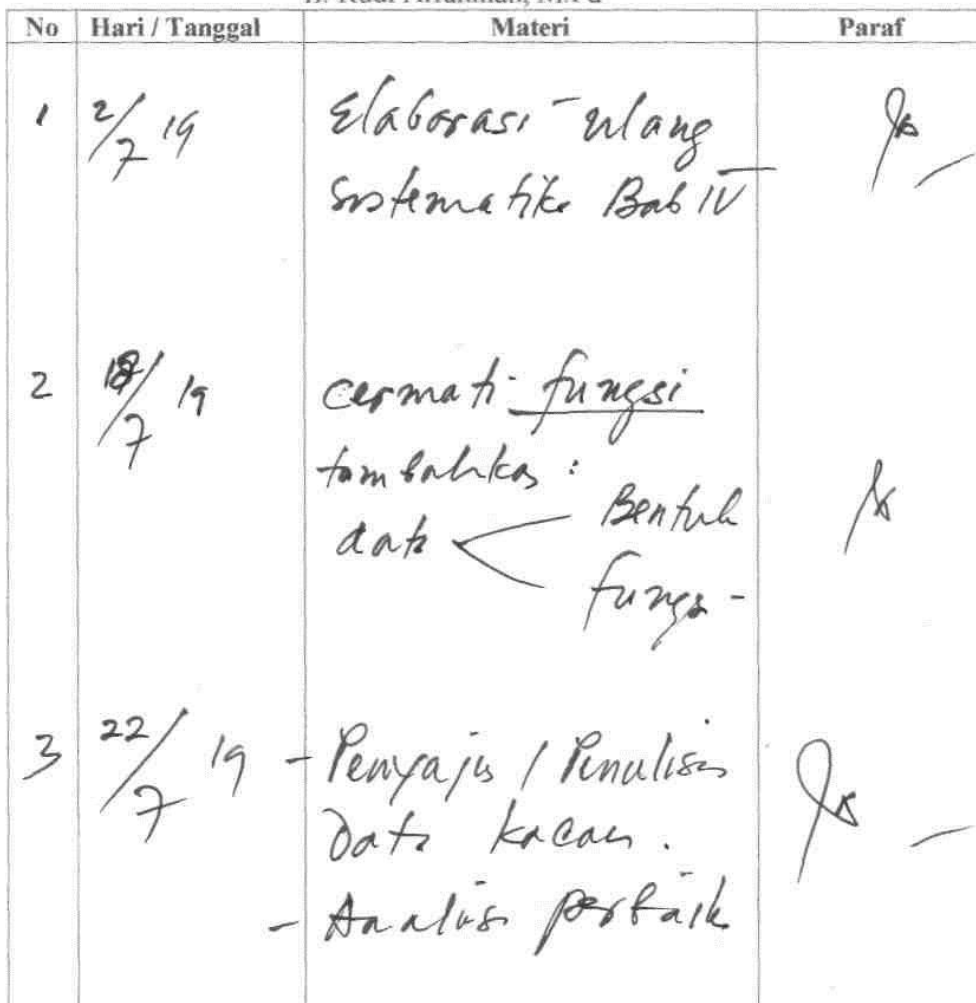 No Hari / Tanggal Materi Paraf
1 2/7 19 Elaborasi ulang
sistematika Bab IV
2 18/7 19 cermati fungsi
tambahkan :
data Bentuk
fungsi -
3 22/7 19 - Penyajian / Penulisan
Data kacau.
- Analisis perbaik